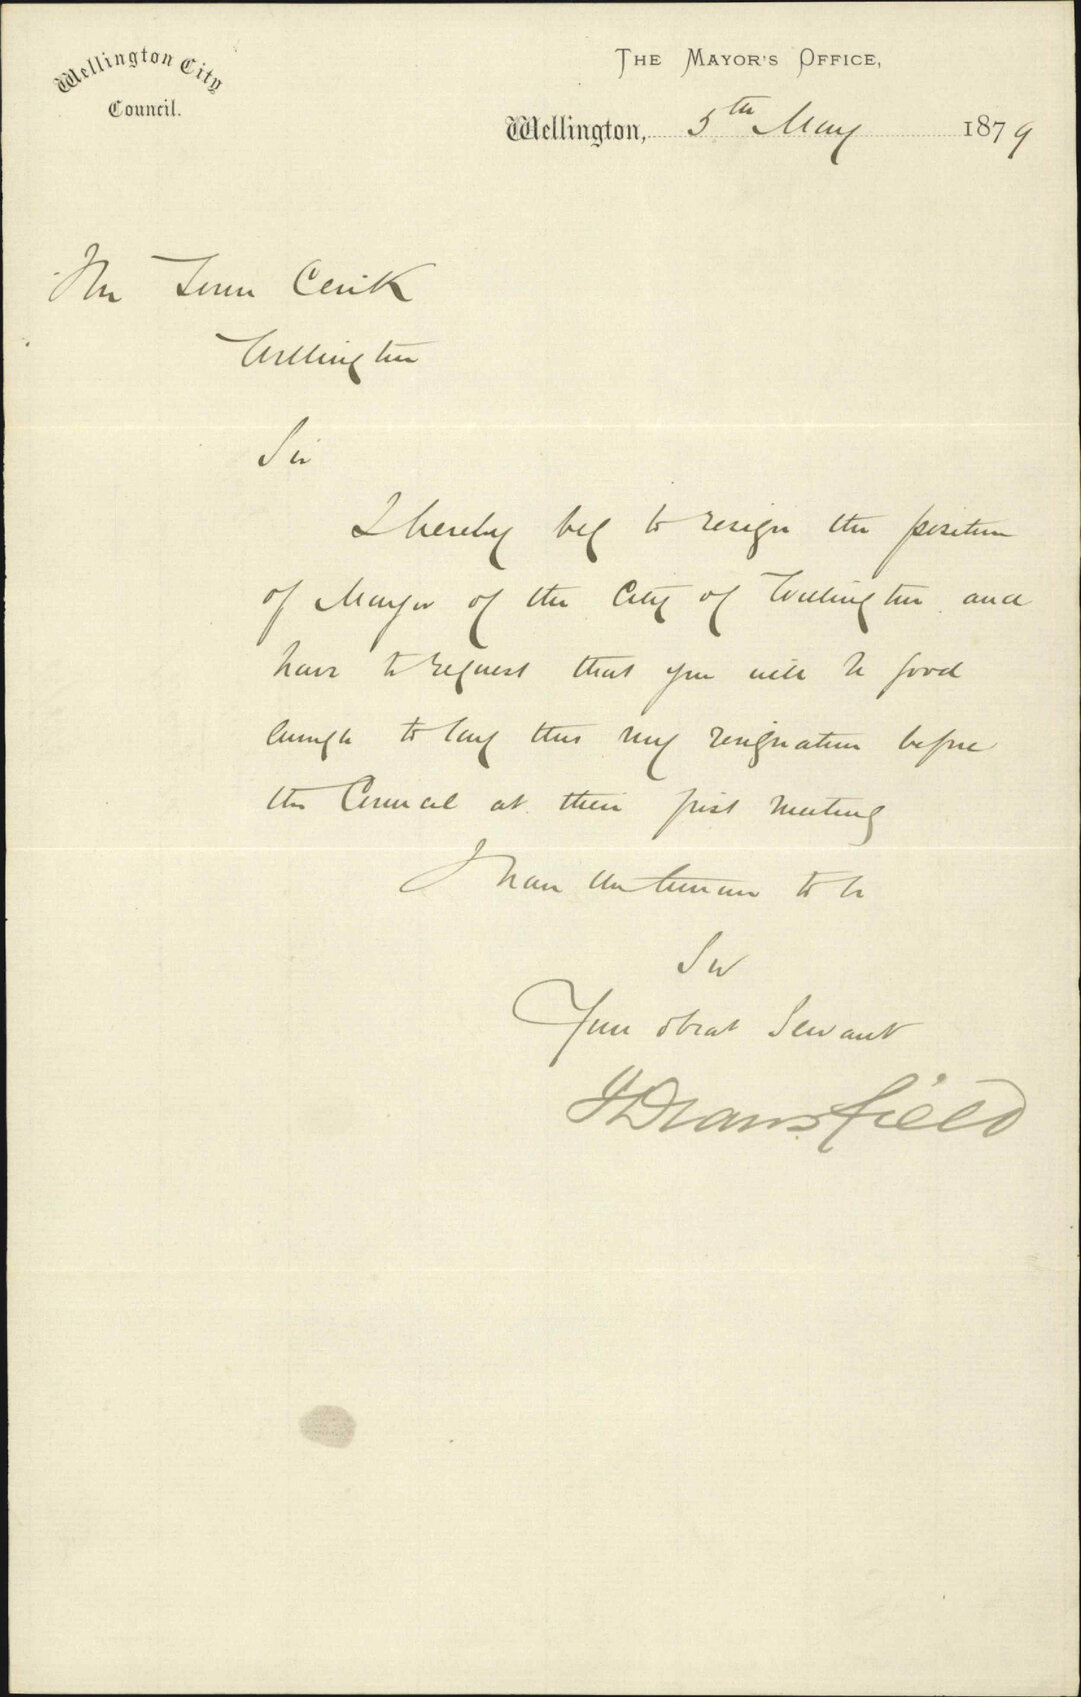 Wellington City
Council.
THE MAYOR'S OFFICE,
Wellington, 5th May 1879
The Town Clerk
Wellington
Sir
I hereby beg to resign the position
of Mayor of the City of Wellington and
have to request that you will be good
enough to lay this my resignation before
the Council at their first meeting
I have the honour to be
Sir
Your obedt Servant
J Dransfield